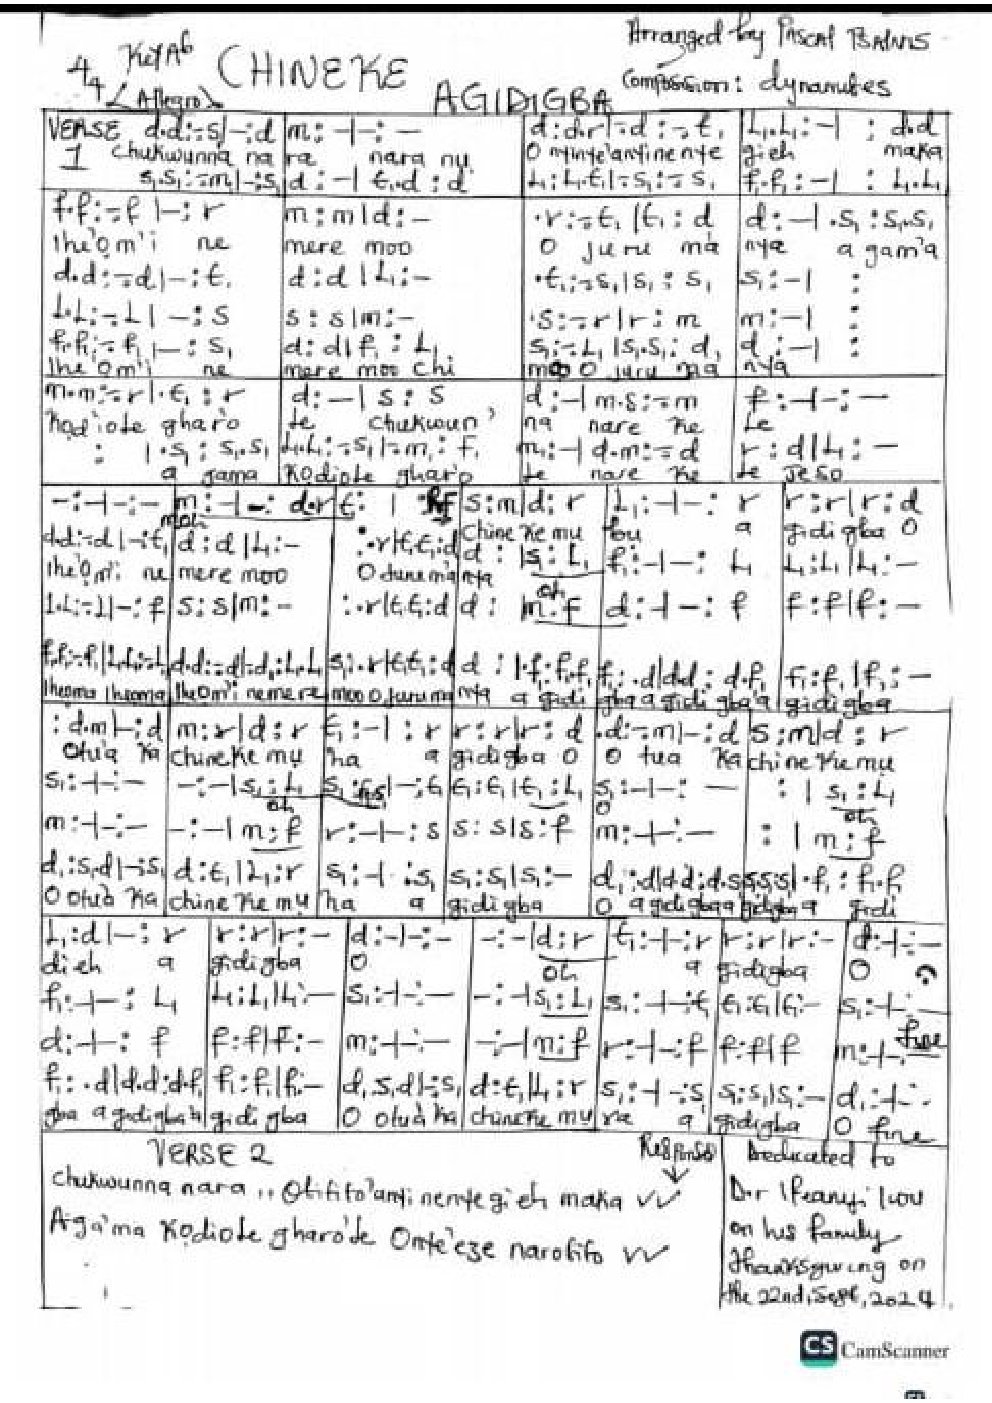 Key Ab
4/4
Allegro
CHINEKE
AGIDIGBA
Arranged by PASCAL PSALMS
Composition: dynamites
VERSE 1
d.d:-s|-:d | m:-|-:- | d:d.r|-d:-t, | L,.L,:-| : d.d
chukwunna na ra nara nu O nyinye'anyi ne nye gi eh maka
s,s,:-m|-:s, | d:-|t,.d:d | L,:L,.t,|-s,:-s, | f,.f,:-| : L,.L,
f.f:-f|-:r | m:m|d:- | .r:-t,|t,:d | d:-|.s,:s,.s,
Ihe'om'i ne mere moo O juru ma nya a gam'a
d.d:-d|-:t, | d:d|L,:- | .t,:-s,|s,:s, | s,:-| :
L.L:-L|-:s | s:s|m:- | .s:-r|r:m | m:-| :
f,.f,:-f,|-:s, | d:d|f,:L, | s,:-L,|s,.s,:d, | d:-| :
Ihe'om'i ne mere moo chi moo O juru ma nya
m.m:-r|.t,:r | d:-|s:s | d:-|m.s:-m | f:-|-:-
kod'iole gharo te chukwun' na nare ke le
: |.s,:s,.s, | L,.L,:-s,|-m,:f, | m,:-|d.m:-d | r:d|L,:-
a gama kodiole gharo te nare ke le Jeso
-:-|-:- | m:-|-:d.r | t,: | s:m|d:r | L,:-|-:r | r:r|r:d
moh Chine ke mu bu a gidigba O
d.d:-d|-:t, | d:d|L,:- | :.r|t,t,:d | d: |s,:L, | f,:-|-:L, | L,:L,|L,:-
Ihe'om'i ne mere moo O juru ma nya oh
L.L:-L|-:f | s:s|m:- | :.r|t,t,:d | d: |m:f | d:-|-:f | f:f|f:-
f,.f,:-f,|L,.L,:-L, | d.d:-d|-d,:L,.L, | s,:.r|t,t,:d | d: |.f,:f,.f, | f,:.d|d.d:d.f, | f,:f,|f,:-
Iheoma Iheoma Iheom'i ne mere moo O juru ma nya a gidi gba a gidi gba'a gidigba
:d.m|-:d | m:r|d:r | t,:-|:r | r:r|r:d | .d:-m|-:d | s:m|d:r
Otu'a ka chineke mu ha a gidigba O O tua ka chine ke mu
s,:-|-:- | -:-|s,:L, | s,:-|-:t, | t,:t,|t,:L, | s,:-|-:- | : |s,:L,
oh O oh
m:-|-:- | -:-|m:f | r:-|-:s | s:s|s:f | m:-|-:- | : |m:f
d,:s,d|-:s, | d:t,|L,:r | s,:-|-:s, | s,:s,|s,:-
O otua ka chine ke mu ha a gidigba O a gidigba a gidigba a gidi
L,:d|-:r | r:r|r:- | d:-|-:- | -:-|d:r | t,:-|-:r | r:r|r:- | d:-|-:-
di eh a gidigba O oh a gidigba O
f,:-|-:L, | L,:L,|L,:- | s,:-|-:- | -:-|s,:L, | s,:-|-:t, | t,:t,|t,:- | s,:-|-:-
d:-|-:f | f:f|f:- | m:-|-:- | -:-|m:f | r:-|-:f | f:f|f | m:-|-
fine
f,:.d|d.d:d.f, | f,:f,|f,:- | d,s,d|-:s, | d:t,|L,:r | s,:-|-:s, | s,:s,|s,:- | d,:-|-:-
gba a gidigba'a gidi gba O otua ka chineke mu ra a gidigba O fine
VERSE 2
Response
chukwunna nara ,, Otitito'anyi nenye gi eh maka √√
Aiga'ma kodiole gharo'de Onye'eze narotito √√
Dedicated to
Dr Ifeanyi
on his family
thanksgiving on
the 22nd, Sept, 2024
CS CamScanner